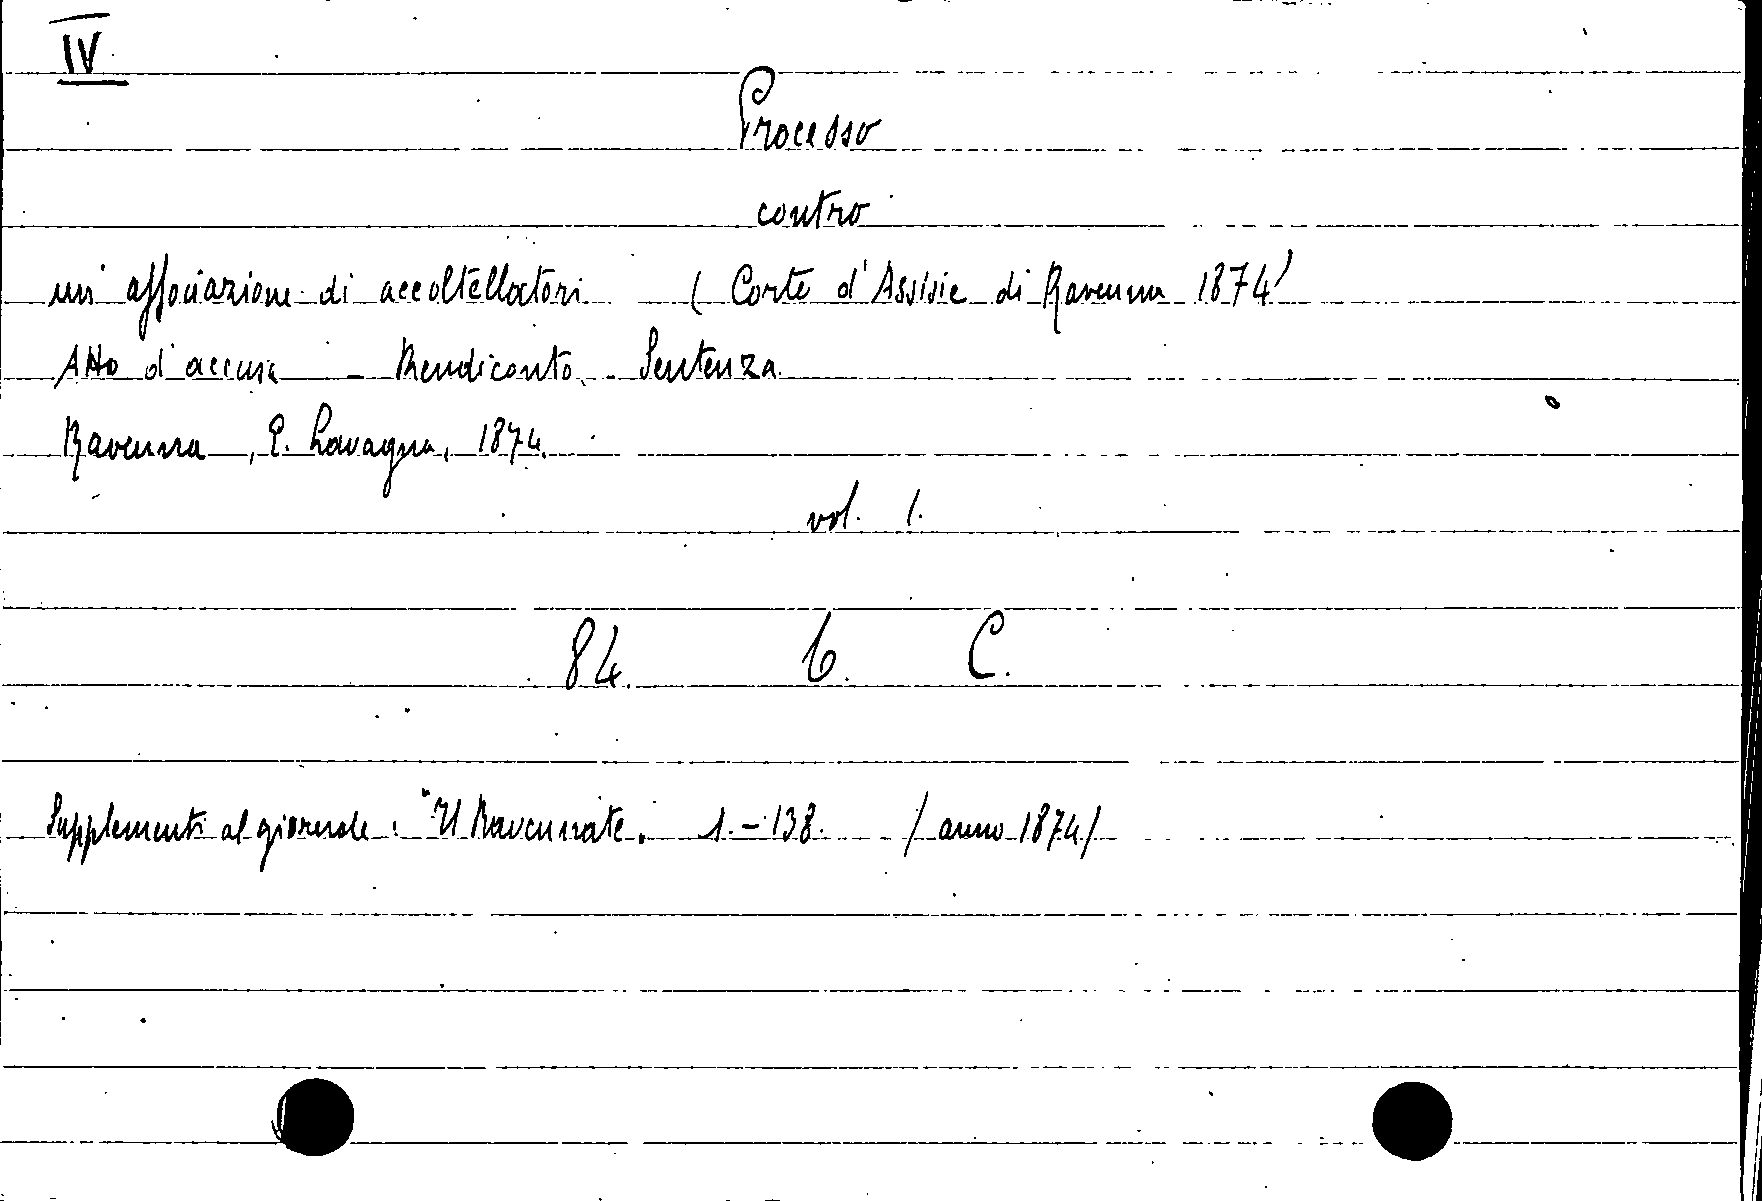 IV
Processo
contro
un' associazione di accoltellatori ( Corte d'Assisie di Ravenna 1874)
Atto d'accusa - Rendiconto - Sentenza
Ravenna, E. Lavagna, 1874.
vol. 1.
84. 6. C.
Supplementi al giornale: "Il Ravennate. 1.-138. /anno 1874/